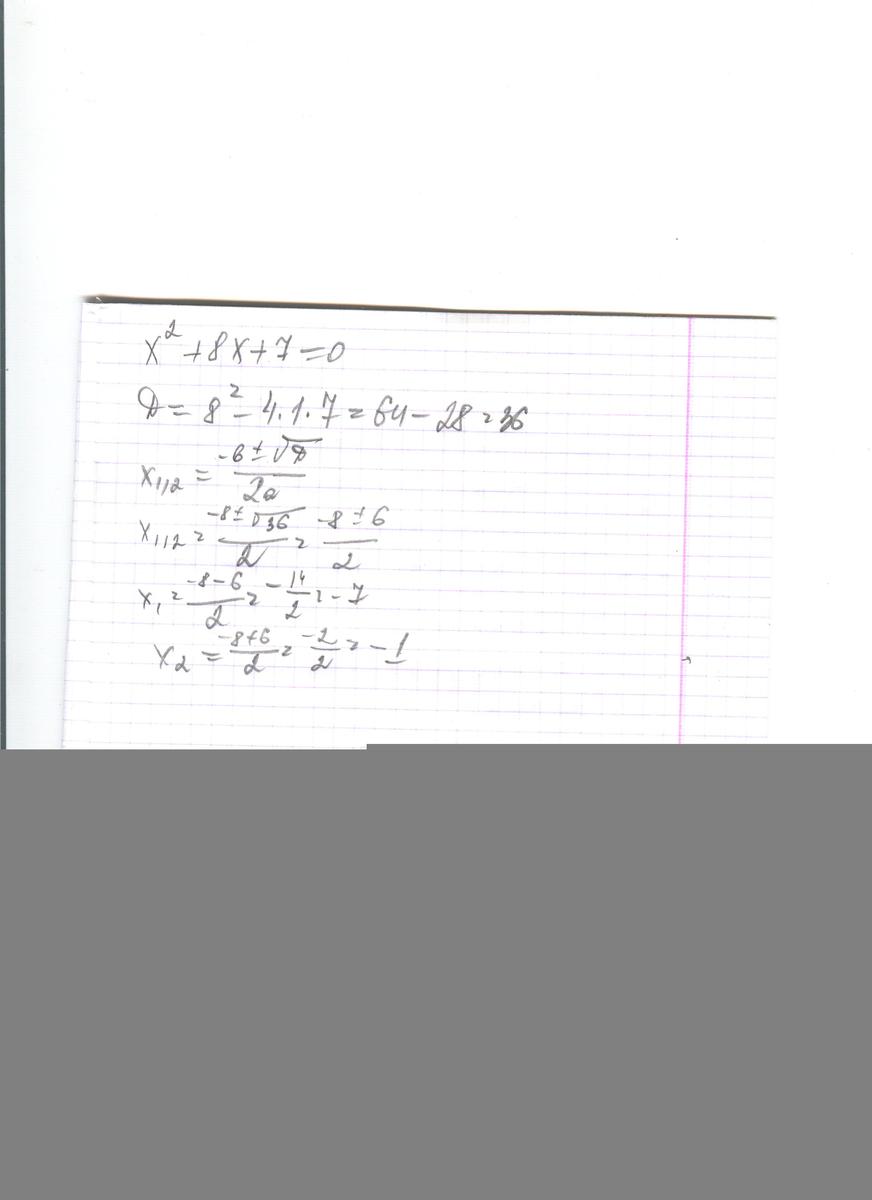 x² + 8x + 7 = 0
D = 8² - 4·1·7 = 64 - 28 = 36
x₁,₂ = (-b ± √D)/(2a)
x₁,₂ = (-8 ± √36)/2 = (-8 ± 6)/2
x₁ = (-8 - 6)/2 = -14/2 = -7
x₂ = (-8 + 6)/2 = -2/2 = -1